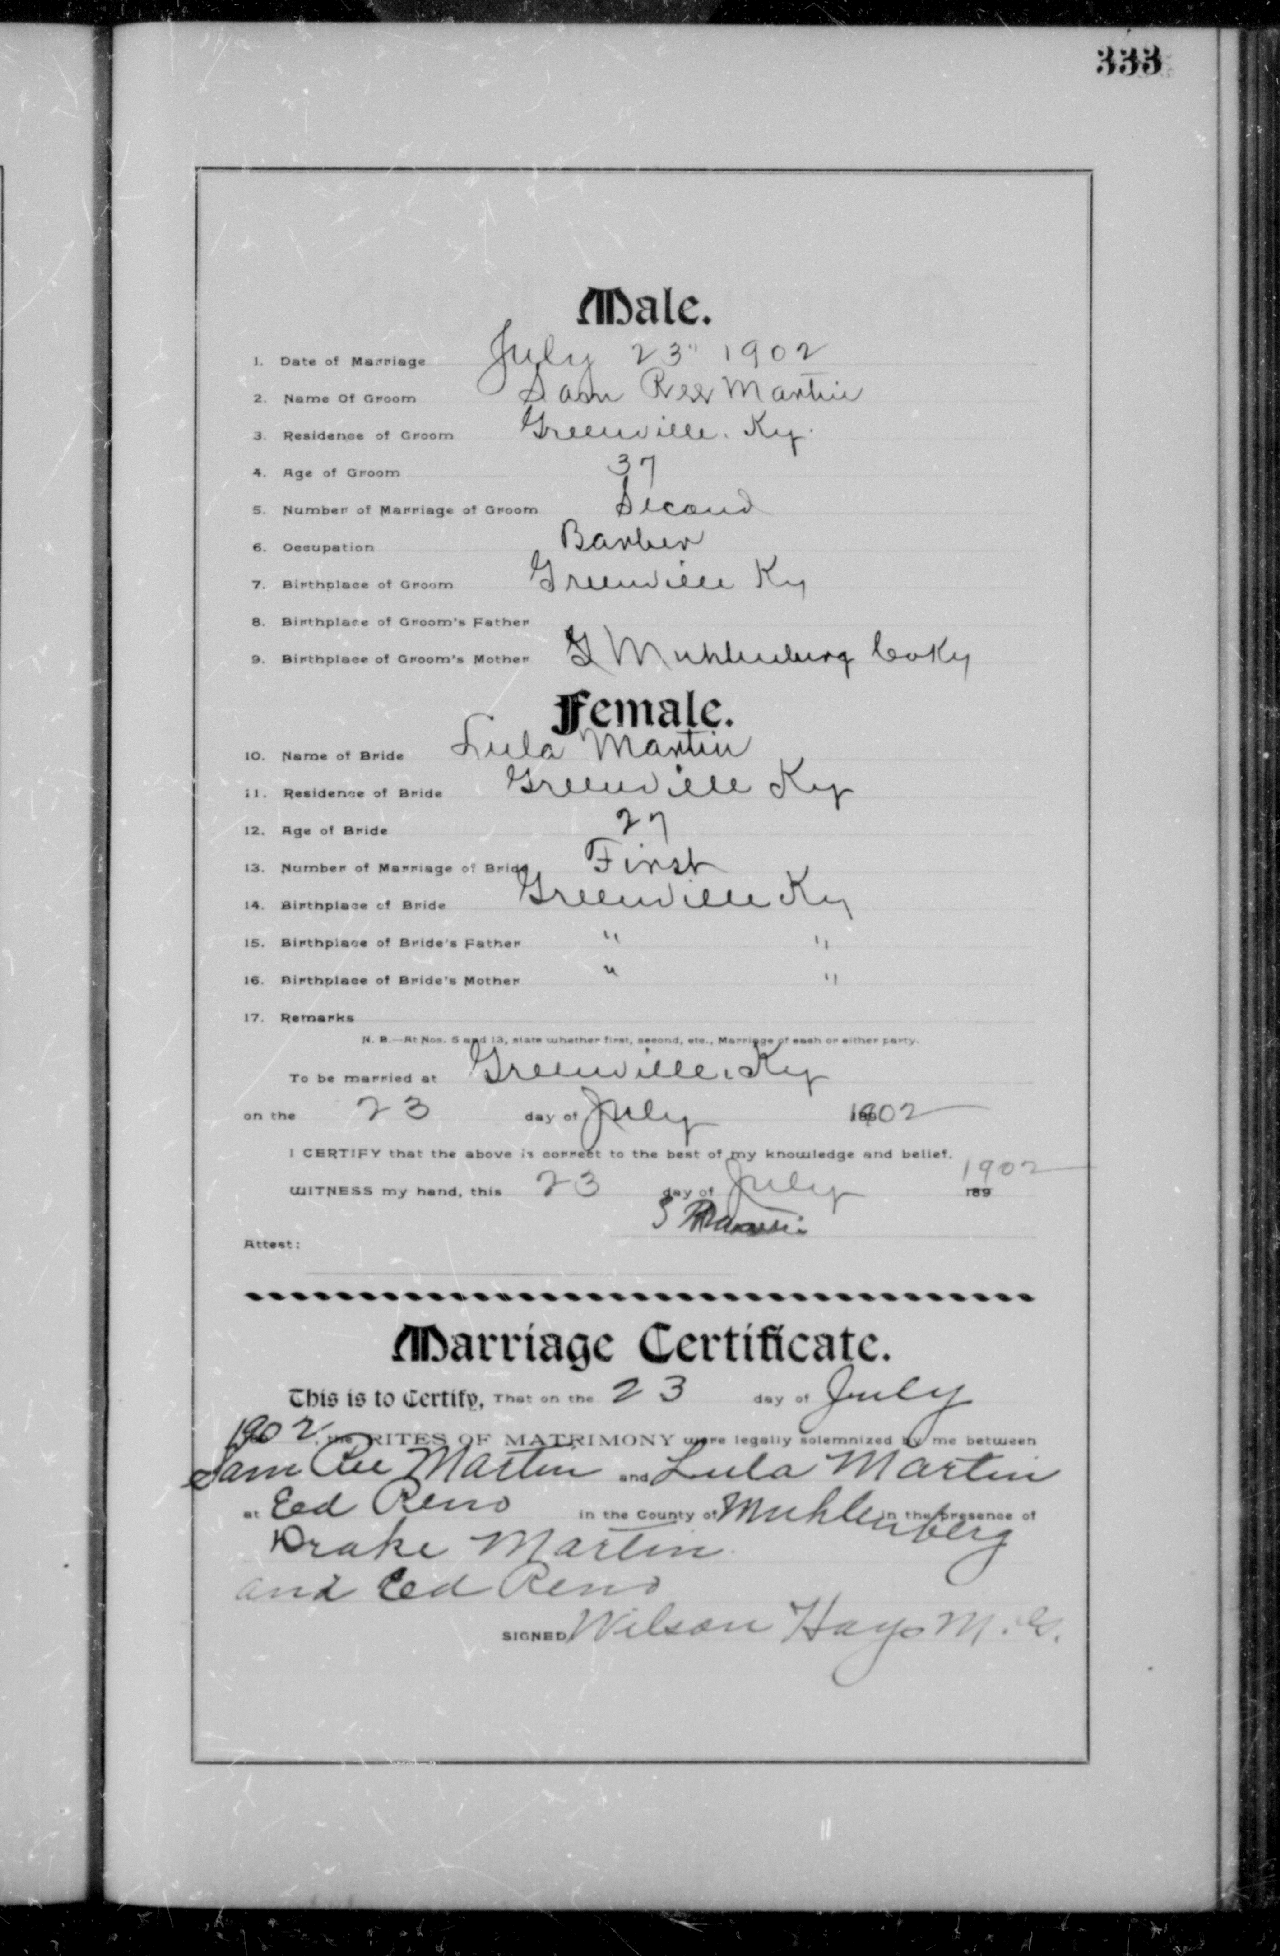 333
Male.
1. Date of Marriage July 23" 1902
2. Name Of Groom Sam Ree Martin
3. Residence of Groom Greenville, Ky.
4. Age of Groom 37
5. Number of Marriage of Groom Second
6. Occupation Barber
7. Birthplace of Groom Greenville Ky
8. Birthplace of Groom's Father
9. Birthplace of Groom's Mother Muhlenburg Co Ky
Female.
10. Name of Bride Lula Martin
11. Residence of Bride Greenville Ky
12. Age of Bride 27
13. Number of Marriage of Bride First
14. Birthplace of Bride Greenville Ky
15. Birthplace of Bride's Father " "
16. Birthplace of Bride's Mother " "
17. Remarks
N. B.—At Nos. 5 and 13, state whether first, second, etc., Marriage of each or either party.
To be married at Greenville, Ky
on the 23 day of July 1902
I CERTIFY that the above is correct to the best of my knowledge and belief.
1902
WITNESS my hand, this 23 day of July 189
S R Martin
Attest:
Marriage Certificate.
This is to Certify, That on the 23 day of July
1902, the RITES OF MATRIMONY were legally solemnized by me between
Sam Ree Martin and Lula Martin
at Eed Reno in the County of Muhlenberg in the presence of
Drake Martin
and Eed Reno
SIGNED Wilson Hays M. G.